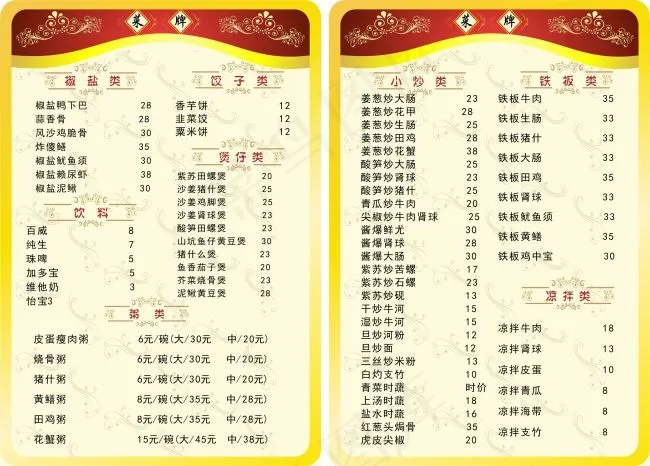 菜 牌
椒盐类
椒盐鸭下巴 28
蒜香骨 28
风沙鸡脆骨 30
炸傻鳝 35
椒盐鱿鱼须 30
椒盐赖尿虾 38
椒盐泥鳅 30
饮料
百威 8
纯生 7
珠啤 5
加多宝 5
维他奶 3
怡宝3
饺子类
香芋饼 12
韭菜饺 12
粟米饼 12
煲仔类
紫苏田螺煲 20
沙姜猪什煲 25
沙姜鸡脚煲 25
沙姜肾球煲 23
酸笋田螺煲 23
山坑鱼仔黄豆煲 30
猪什么煲 23
鱼香茄子煲 20
芥菜烧骨煲 23
泥鳅黄豆煲 28
粥类
皮蛋瘦肉粥 6元/碗(大/30元 中/20元)
烧骨粥 6元/碗(大/30元 中/20元)
猪什粥 6元/碗(大/30元 中/20元)
黄鳝粥 8元/碗(大/35元 中/28元)
田鸡粥 8元/碗(大/35元 中/28元)
花蟹粥 15元/碗(大/45元 中/38元)
菜 牌
小炒类
姜葱炒大肠 23
姜葱炒花甲 28
姜葱炒生肠 25
姜葱炒田鸡 28
姜葱炒花蟹 38
酸笋炒大肠 25
酸笋炒肾球 23
酸笋炒猪什 25
青瓜炒牛肉 20
尖椒炒牛肉肾球 25
酱爆鲜尤 30
酱爆肾球 28
酱爆大肠 30
紫苏炒苦螺 17
紫苏炒石螺 23
紫苏炒砚 13
干炒牛河 15
湿炒牛河 15
旦炒河粉 12
旦炒面 12
三丝炒米粉 13
白灼支竹 10
青菜时蔬 时价
上汤时蔬 18
盐水时蔬 16
红葱头焗骨 35
虎皮尖椒 20
铁板类
铁板牛肉 35
铁板生肠 33
铁板猪什 33
铁板大肠 33
铁板田鸡 35
铁板肾球 33
铁板鱿鱼须 33
铁板黄鳝 35
铁板鸡中宝 30
凉拌类
凉拌牛肉 18
凉拌肾球 13
凉拌皮蛋 10
凉拌青瓜 8
凉拌海带 8
凉拌支竹 8